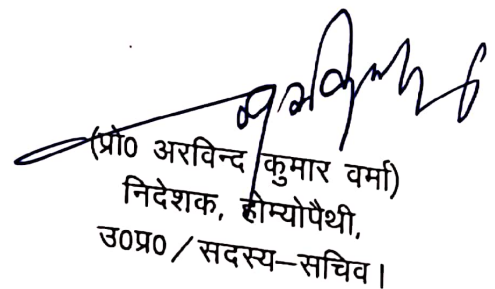 (प्रो0 अरविन्द कुमार वर्मा)
निदेशक, होम्योपैथी,
उ0प्र0 / सदस्य–सचिव।